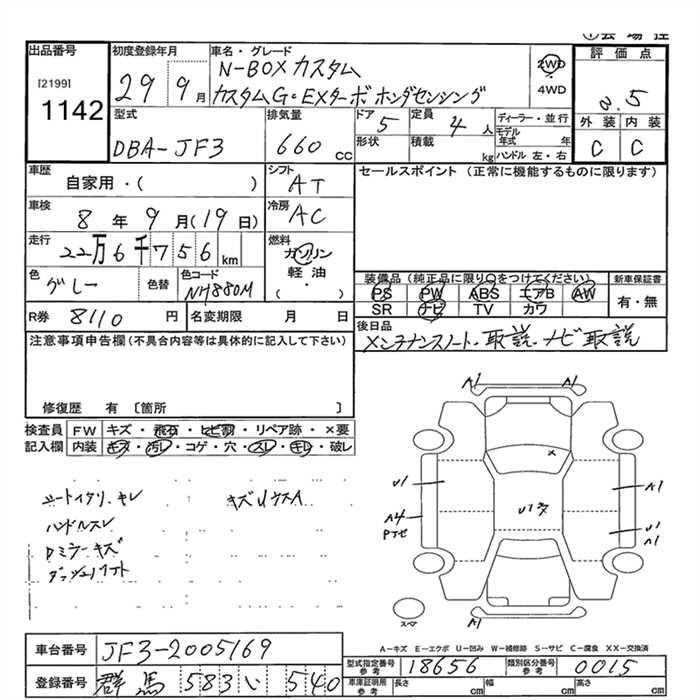 ①会場控
出品番号
[2199]
1142
初度登録年月
29 9月
車名・グレード
N-BOXカスタム
カスタムG・EXターボホンダセンシング
2WD
4WD
評価点
3.5
外装 内装
C C
型式
DBA-JF3
排気量
660 cc
ドア 5
形状
定員 4人
積載 kg
ディーラー・並行
モデル年式 年
ハンドル 左・右
車歴
自家用・( )
シフト
AT
車検
8年9月(19日)
冷房
AC
走行
22万6千756km
燃料
ガソリン
軽油
( ・ )
色
グレー
色替
色コード
NH880M
R券 8110円
名変期限 月 日
セールスポイント (正常に機能するものに限ります)
装備品(純正品に限り○をつけてください)
PS PW ABS エアB AW
SR ナビ TV カワ
新車保証書
有・無
後日品
メンテナンスノート・取説・ナビ取説
注意事項申告欄(不具合内容等は具体的に記入して下さい)
修復歴 有 〔箇所 〕
検査員記入欄
FW キズ・飛石・ヒビ割・リペア跡・×要
内装 キズ・汚レ・コゲ・穴・スレ・キレ・破レ
シートイタリ・キレ
キズUウスA
ハンドルスレ
Dミラーキズ
A1 A1
×
U1 A1
A4
U1
A1
スペア
A1
A-キズ E-エクボ U-凹み W-補修跡 S-サビ C-腐食 XX-交換済
車台番号
JF3-2005169
登録番号
群馬 583 い 540
型式指定番号 参考
18656
類別区分番号 参考
0015
車庫証明用 参考
長さ cm
幅 cm
高さ cm